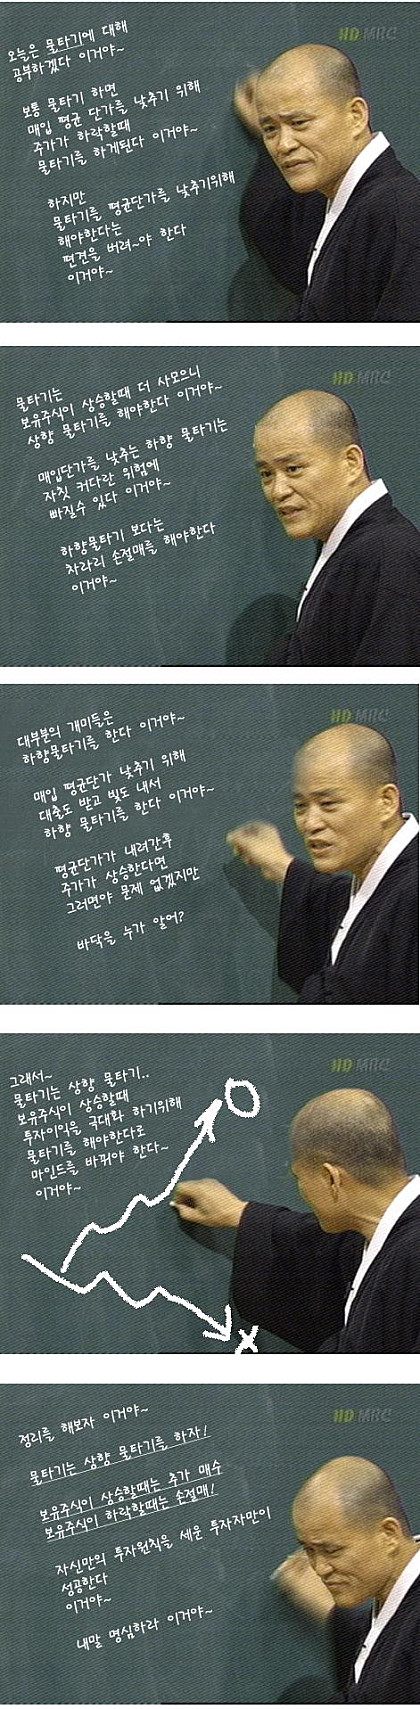 HD MBC
오늘은 물타기에 대해
공부하겠다 이거야~
보통 물타기 하면
매입 평균 단가를 낮추기 위해
주가가 하락할때
물타기를 하게된다 이거야~
하지만
물타기를 평균단가를 낮추기위해
해야한다는
편견을 버려~야 한다
이거야~
HD MBC
물타기는
보유주식이 상승할때 더 사모으니
상향 물타기를 해야한다 이거야~
매입단가를 낮추는 하향 물타기는
자칫 커다란 위험에
빠질수 있다 이거야~
하향물타기 보다는
차라리 손절매를 해야한다
이거야~
HD MBC
대부분의 개미들은
하향물타기를 한다 이거야~
매입 평균단가 낮추기 위해
대출도 받고 빚도 내서
하향 물타기를 한다 이거야~
평균단가가 내려간후
주가가 상승한다면
그러면야 문제 없겠지만
바닥을 누가 알어?
HD MBC
그래서~
물타기는 상향 물타기..
보유주식이 상승할때
투자이익을 극대화 하기위해
물타기를 해야한다로
마인드를 바꿔야 한다~
이거야~
O
X
HD MBC
정리를 해보자 이거야~
물타기는 상향 물타기를 하자!
보유주식이 상승할때는 추가 매수
보유주식이 하락할때는 손절매!
자신만의 투자원칙을 세운 투자자만이
성공한다
이거야~
내말 명심하라 이거야~